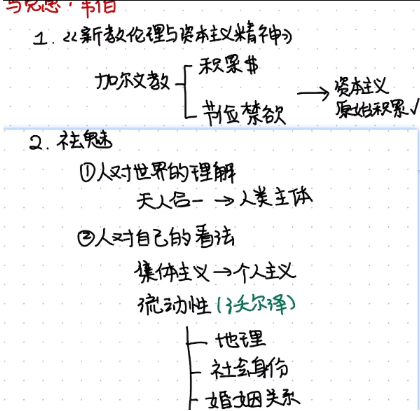 马克思·韦伯
1.《新教伦理与资本主义精神》
加尔文教
积累$
节俭禁欲
→ 资本主义
原始积累√
2. 祛魅
①人对世界的理解
天人合一 → 人类主体
②人对自己的看法
集体主义→个人主义
流动性(沃尔泽)
地理
社会身份
婚姻关系